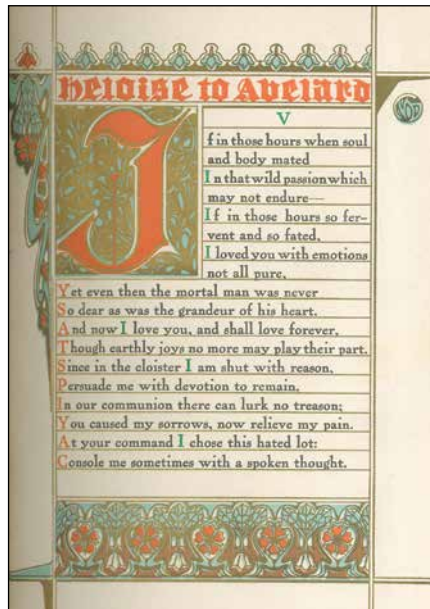 Heloise to Abelard
V
If in those hours when soul
and body mated
In that wild passion which
may not endure—
If in those hours so fer-
vent and so fated,
I loved you with emotions
not all pure,
Yet even then the mortal man was never
So dear as was the grandeur of his heart.
And now I love you, and shall love forever,
Though earthly joys no more may play their part.
Since in the cloister I am shut with reason,
Persuade me with devotion to remain,
In our communion there can lurk no treason;
You caused my sorrows, now relieve my pain.
At your command I chose this hated lot:
Console me sometimes with a spoken thought.